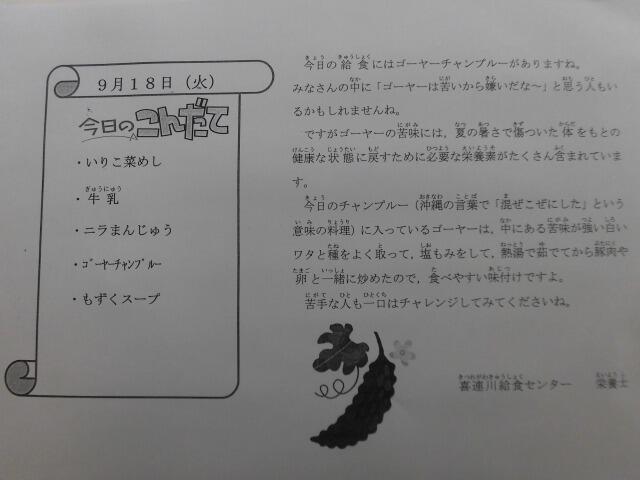 9月18日（火）
今日のこんだて
・いりこ菜めし
・牛乳
・ニラまんじゅう
・ｺﾞｰﾔｰﾁｬﾝﾌﾟﾙｰ
・もずくスープ
今日の給食にはゴーヤーチャンプルーがありますね。
みなさんの中に「ゴーヤーは苦いから嫌いだな～」と思う人もい
るかもしれませんね。
ですがゴーヤーの苦味には，夏の暑さで傷ついた体をもとの
健康な状態に戻すために必要な栄養素がたくさん含まれていま
す。
今日のチャンプルー（沖縄の言葉で「混ぜこぜにした」という
意味の料理）に入っているゴーヤーは，中にある苦味が強い白い
ワタと種をよく取って，塩もみをして，熱湯で茹でてから豚肉や
卵と一緒に炒めたので，食べやすい味付けですよ。
苦手な人も一口はチャレンジしてみてくださいね。
喜連川給食センター　栄養士